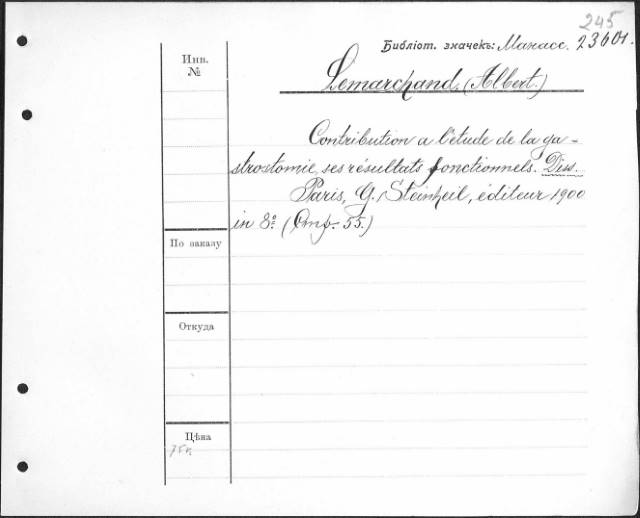 245
Библіот. значекъ: Манасс. 23601.
Инв.
№
Lemarchand (Albert.)
Contribution a l'étude de la ga-
strostomie, ses résultats fonctionnels. Diss.
Paris, G. Steinheil, éditeur 1900
in 8º. (Стр. 55.)
По заказу
Откуда
Цѣна
75к